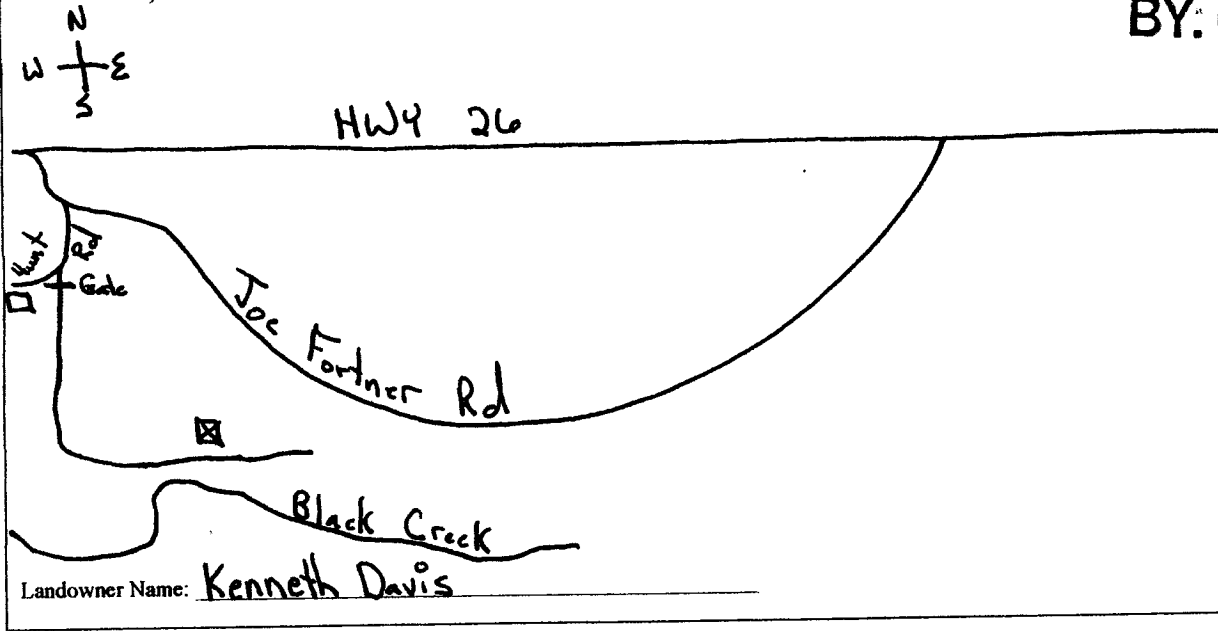 BY:
N
W E
S
HWY 26
Rd
Gate
Joe Fortner Rd
Black Creek
Landowner Name: Kenneth Davis